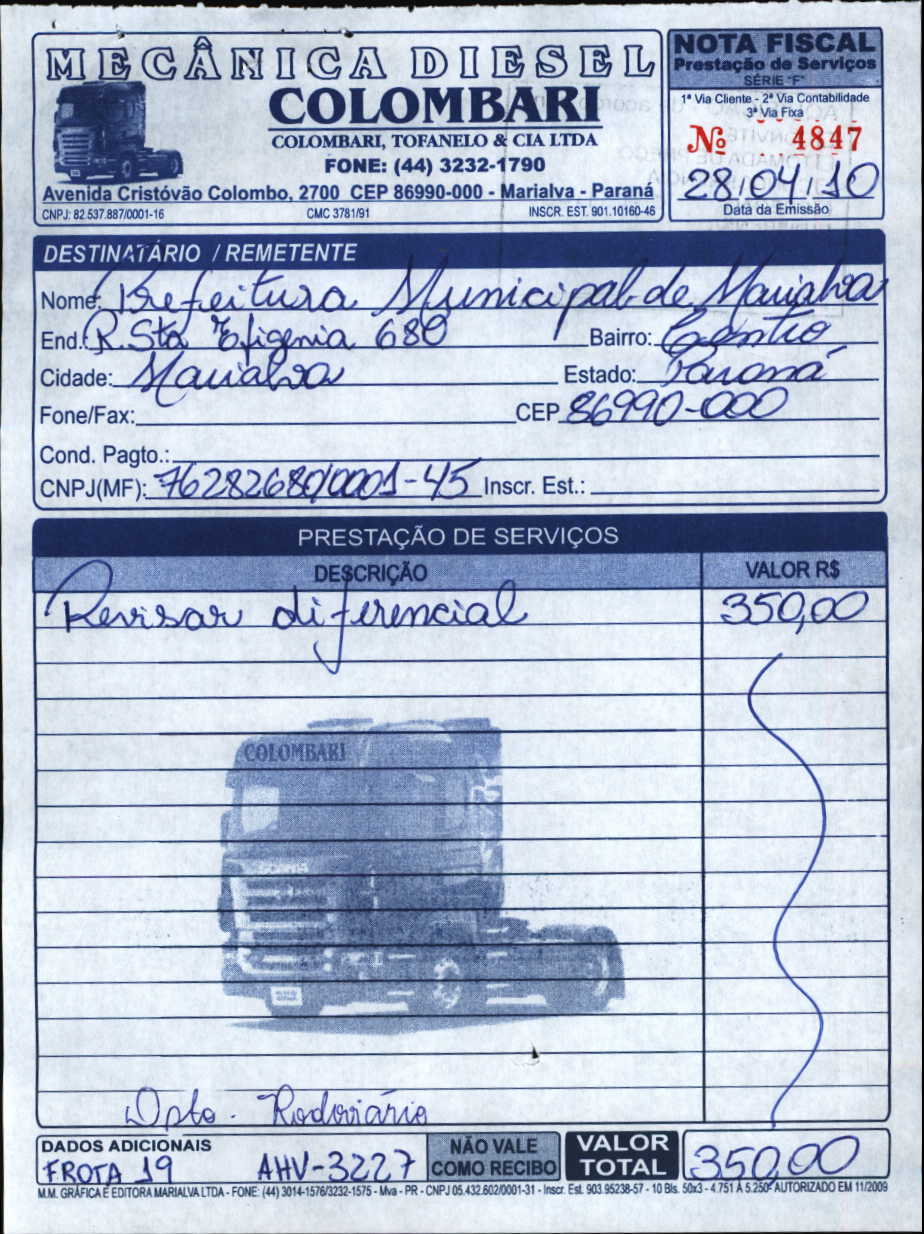 MECÂNICA DIESEL
COLOMBARI
COLOMBARI, TOFANELO & CIA LTDA
FONE: (44) 3232-1790
Avenida Cristóvão Colombo, 2700 CEP 86990-000 - Marialva - Paraná
CNPJ: 82.537.887/0001-16 CMC 3781/91 INSCR. EST. 901.10160-46
NOTA FISCAL
Prestação de Serviços
SÉRIE "F"
1ª Via Cliente - 2ª Via Contabilidade
3ª Via Fixa
Nº 4847
28/04/10
Data da Emissão
DESTINATÁRIO / REMETENTE
Nome: Prefeitura Municipal de Marialva
End.: R. Sta Efigenia 680 Bairro: Centro
Cidade: Marialva Estado: Paraná
Fone/Fax: CEP 86990-000
Cond. Pagto.:
CNPJ(MF): 76282680/0001-45 Inscr. Est.:
PRESTAÇÃO DE SERVIÇOS
DESCRIÇÃO VALOR R$
Revisar diferencial 350,00
COLOMBARI
SCANIA
Dpto. Rodoviário
DADOS ADICIONAIS
FROTA 19 AHV-3227
NÃO VALE
COMO RECIBO
VALOR
TOTAL
350,00
M.M. GRÁFICA E EDITORA MARIALVA LTDA - FONE: (44) 3014-1576/3232-1575 - Mva - PR - CNPJ 05.432.602/0001-31 - Inscr. Est. 903.95238-57 - 10 Bls. 50x3 - 4.751 A 5.250- AUTORIZADO EM 11/2009